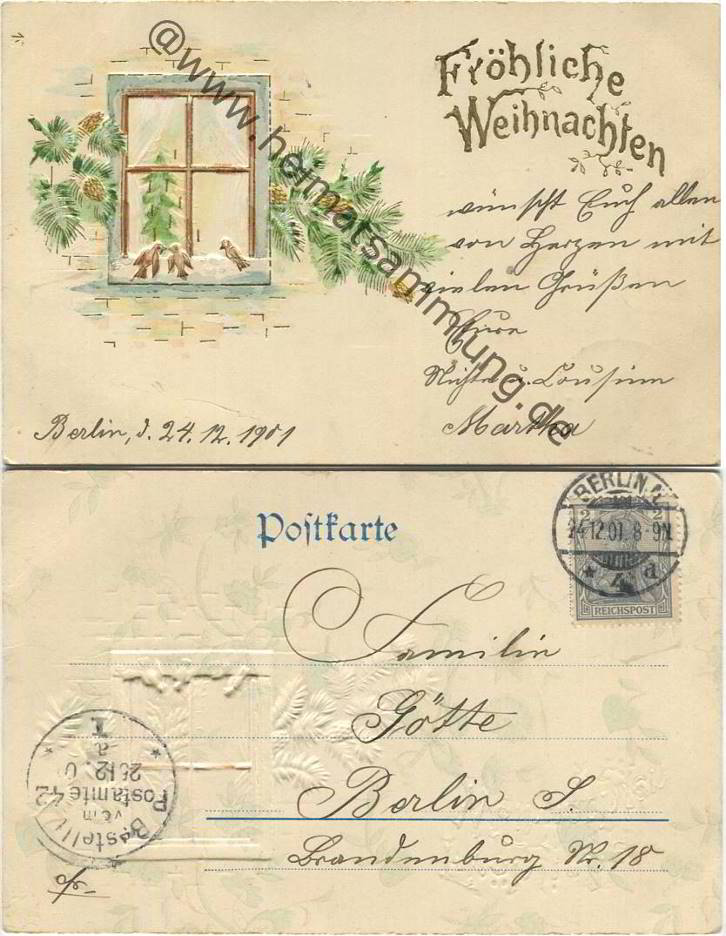 Fröhliche
Weihnachten
wünscht Euch allen
von Herzen mit
vielen Grüßen
Eure
Nichte u. Cousine
Martha
Berlin, d. 24.12.1901
@www.heimatsammlung.de
Postkarte
BERLIN
24.12.01. 8-9N
* 4 a
2 2
REICHSPOST
Familie
Götte
Berlin S.
Brandenburg Str. 18
Bestellt
vom
Postamte 42
25 12. 0
a
* *